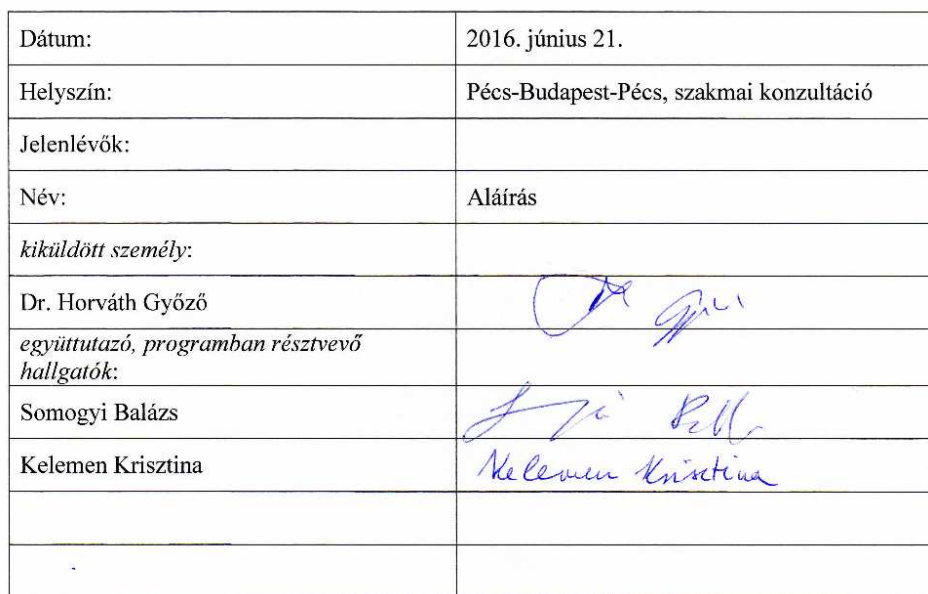 Dátum:
2016. június 21.
Helyszín:
Pécs-Budapest-Pécs, szakmai konzultáció
Jelenlévők:
Név:
Aláírás
kiküldött személy:
Dr. Horváth Győző
együttutazó, programban résztvevő
hallgatók:
Somogyi Balázs
Kelemen Krisztina
Kelemen Krisztina